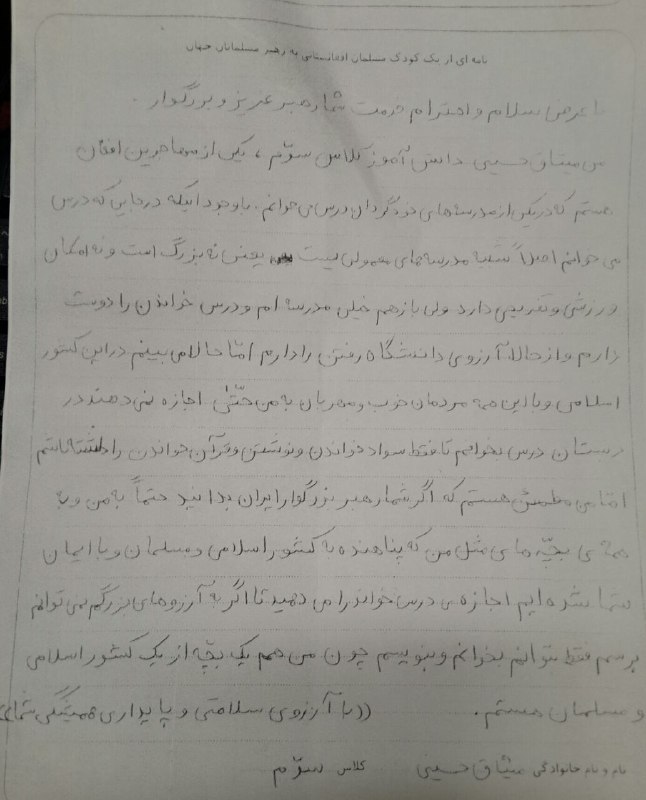 نامه ای از یک کودک مسلمان افغانستانی به رهبر مسلمانان جهان
با عرض سلام و احترام خدمت شما رهبر عزیز و بزرگوار.
من میثاق حسینی دانش آموز کلاس سوّم، یکی از مهاجرین افغان
هستم که در یکی از مدرسه های خودگردان درس می خوانم. با وجود اینکه در جایی که درس
می خوانم اصلاً شبیه مدرسه های معمولی نیست یعنی نه بزرگ است و نه امکان
ورزشی و تفریحی دارد ولی باز هم خیلی مدرسه ام و درس خواندن را دوست
دارم و از حالا آرزوی دانشگاه رفتن را دارم امّا حالا می بینم در این کشور
اسلامی و با این همه مردمان خوب و مهربان به من حتّیٰ اجازه نمی دهند در
دبستان درس بخوانم تا فقط سواد خواندن و نوشتن و قرآن خواندن را داشته باشم
امّا من مطمئن هستم که اگر شما رهبر بزرگوار ایران بدانید حتماً به من و به
همه ی بچّه های مثل من که پناهنده به کشور اسلامی و مسلمان و با ایمان
شما شده ایم اجازه ی درس خواندن را می دهید تا اگر به آرزوهای بزرگم نمی توانم
برسم فقط بتوانم بخوانم و بنویسم چون من هم یک بچّه از یک کشور اسلامی
و مسلمان هستم. ((با آرزوی سلامتی و پایداری همیشگی شما
نام و نام خانوادگی میثاق حسینی کلاس سوّم